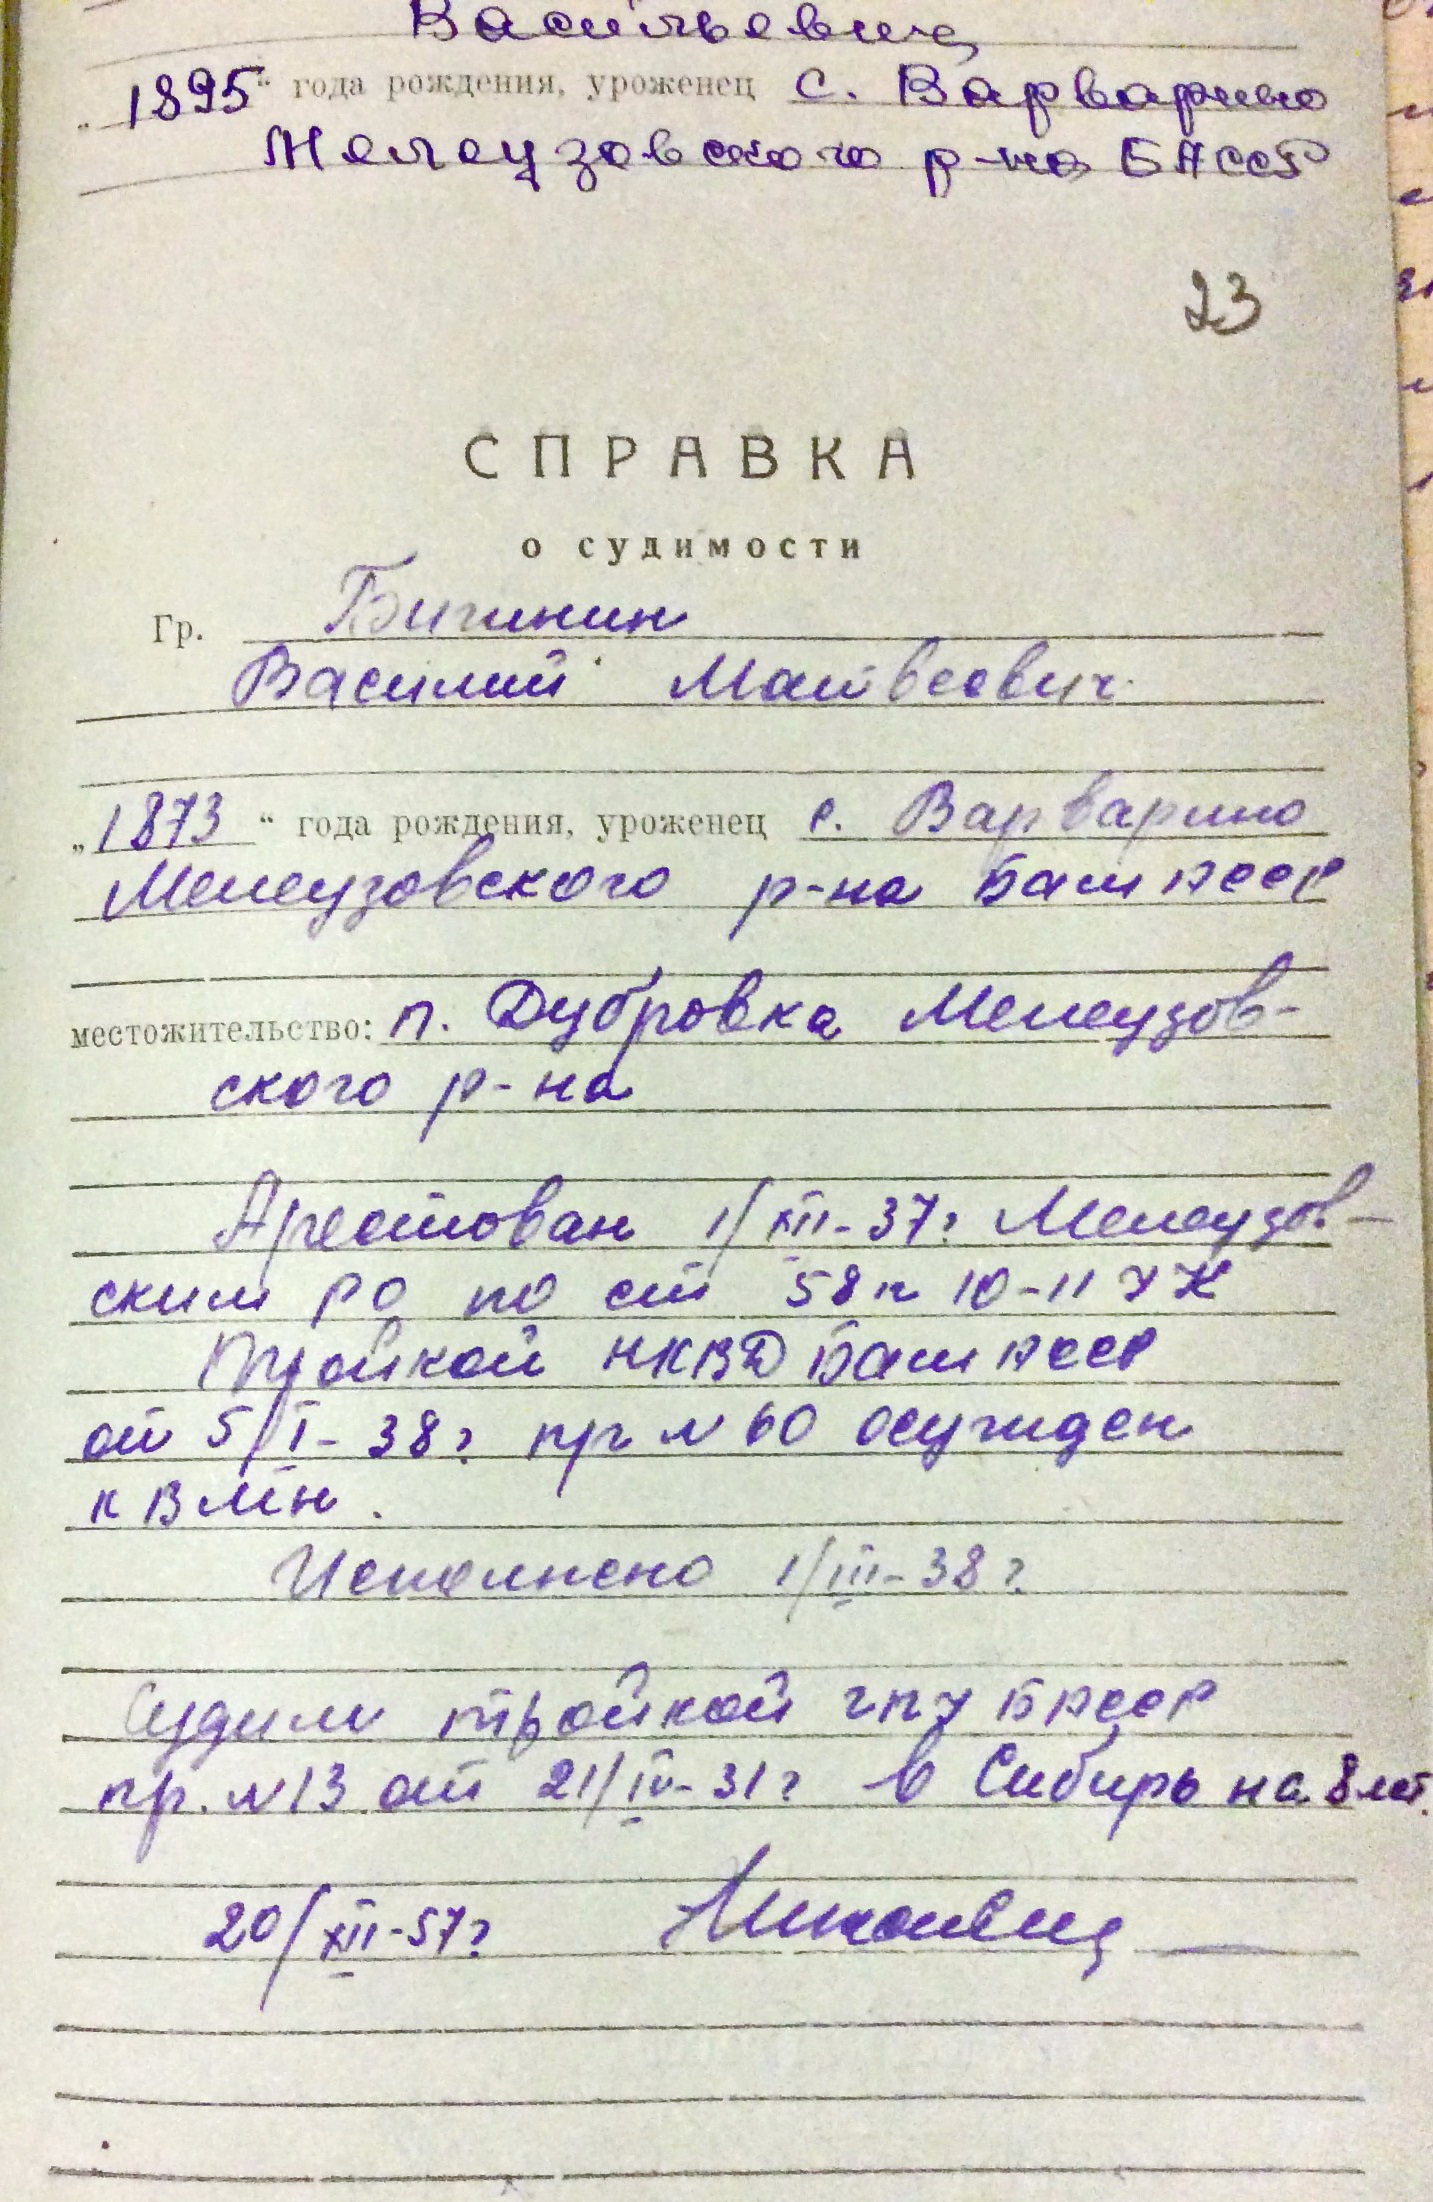 Васильевич
„1895“ года рождения, уроженец с. Варварино
Мелеузовского р-на БАССР
23
СПРАВКА
о судимости
Гр. Бигинин
Василий Матвеевич
„1873“ года рождения, уроженец с. Варварино
Мелеузовского р-на БашАССР
местожительство: п. Дубровка Мелеузов-
ского р-на
Арестован 1/XII-37г Мелеузов-
ским РО по ст 58 п 10-11 УК
Тройкой НКВД БашАССР
от 5/I-38г пр № 60 осужден
к ВМН.
Исполнено 1/III-38г
Судим тройкой ГПУ БАССР
пр. №13 от 21/IV-31г в Сибирь на 8 лет.
20/XII-57г